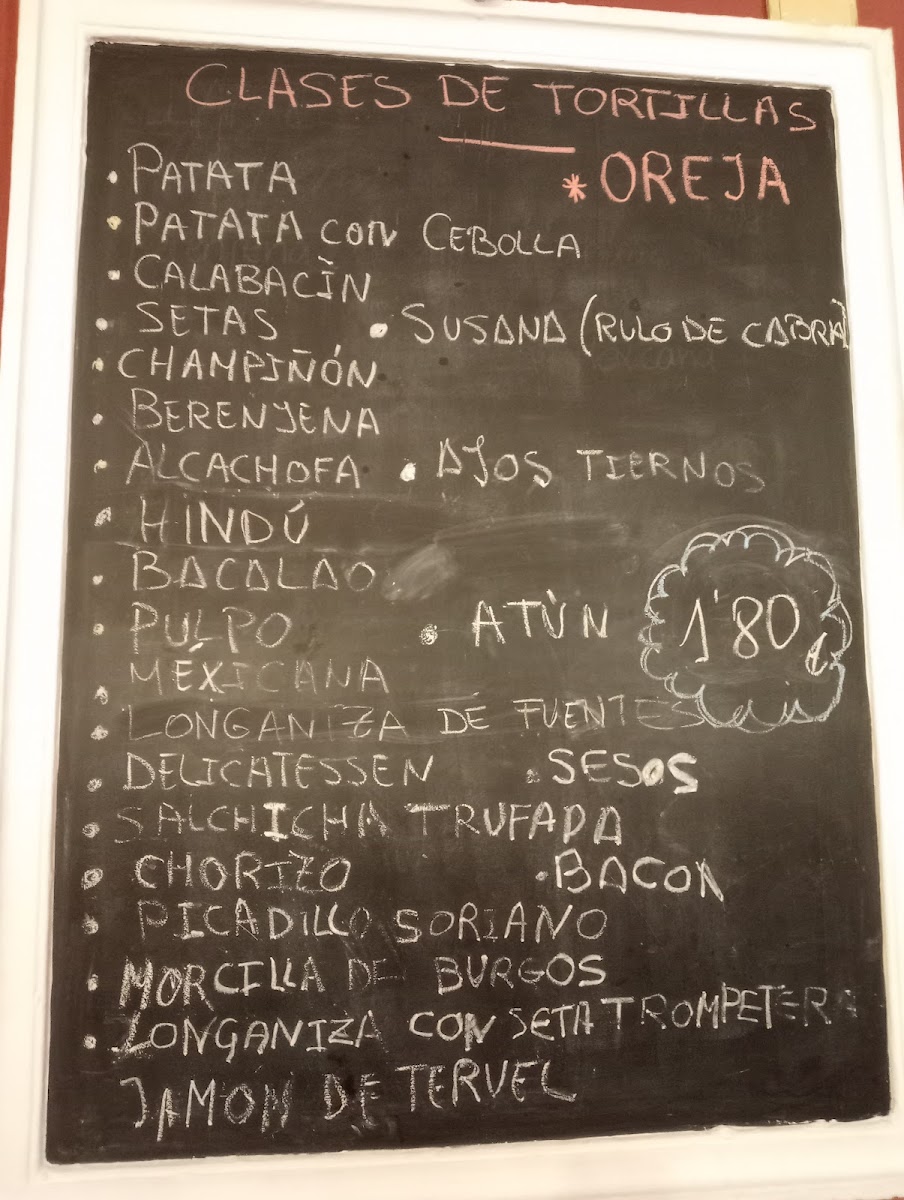 CLASES DE TORTILLAS
• PATATA
* OREJA
• PATATA CON CEBOLLA
• CALABACÍN
• SETAS • SUSANA (RULO DE CABRA)
• CHAMPIÑÓN
• BERENJENA
• ALCACHOFA • AJOS TIERNOS
• HINDÚ
• BACALAO
• PULPO • ATÚN 1'80 €
• MÉXICANA
• LONGANIZA DE FUENTES
• DELICATESSEN • SESOS
• SALCHICHA TRUFADA
• CHORIZO • BACON
• PICADILLO SORIANO
• MORCILLA DE BURGOS
• LONGANIZA CON SETA TROMPETERA
JAMON DE TERUEL